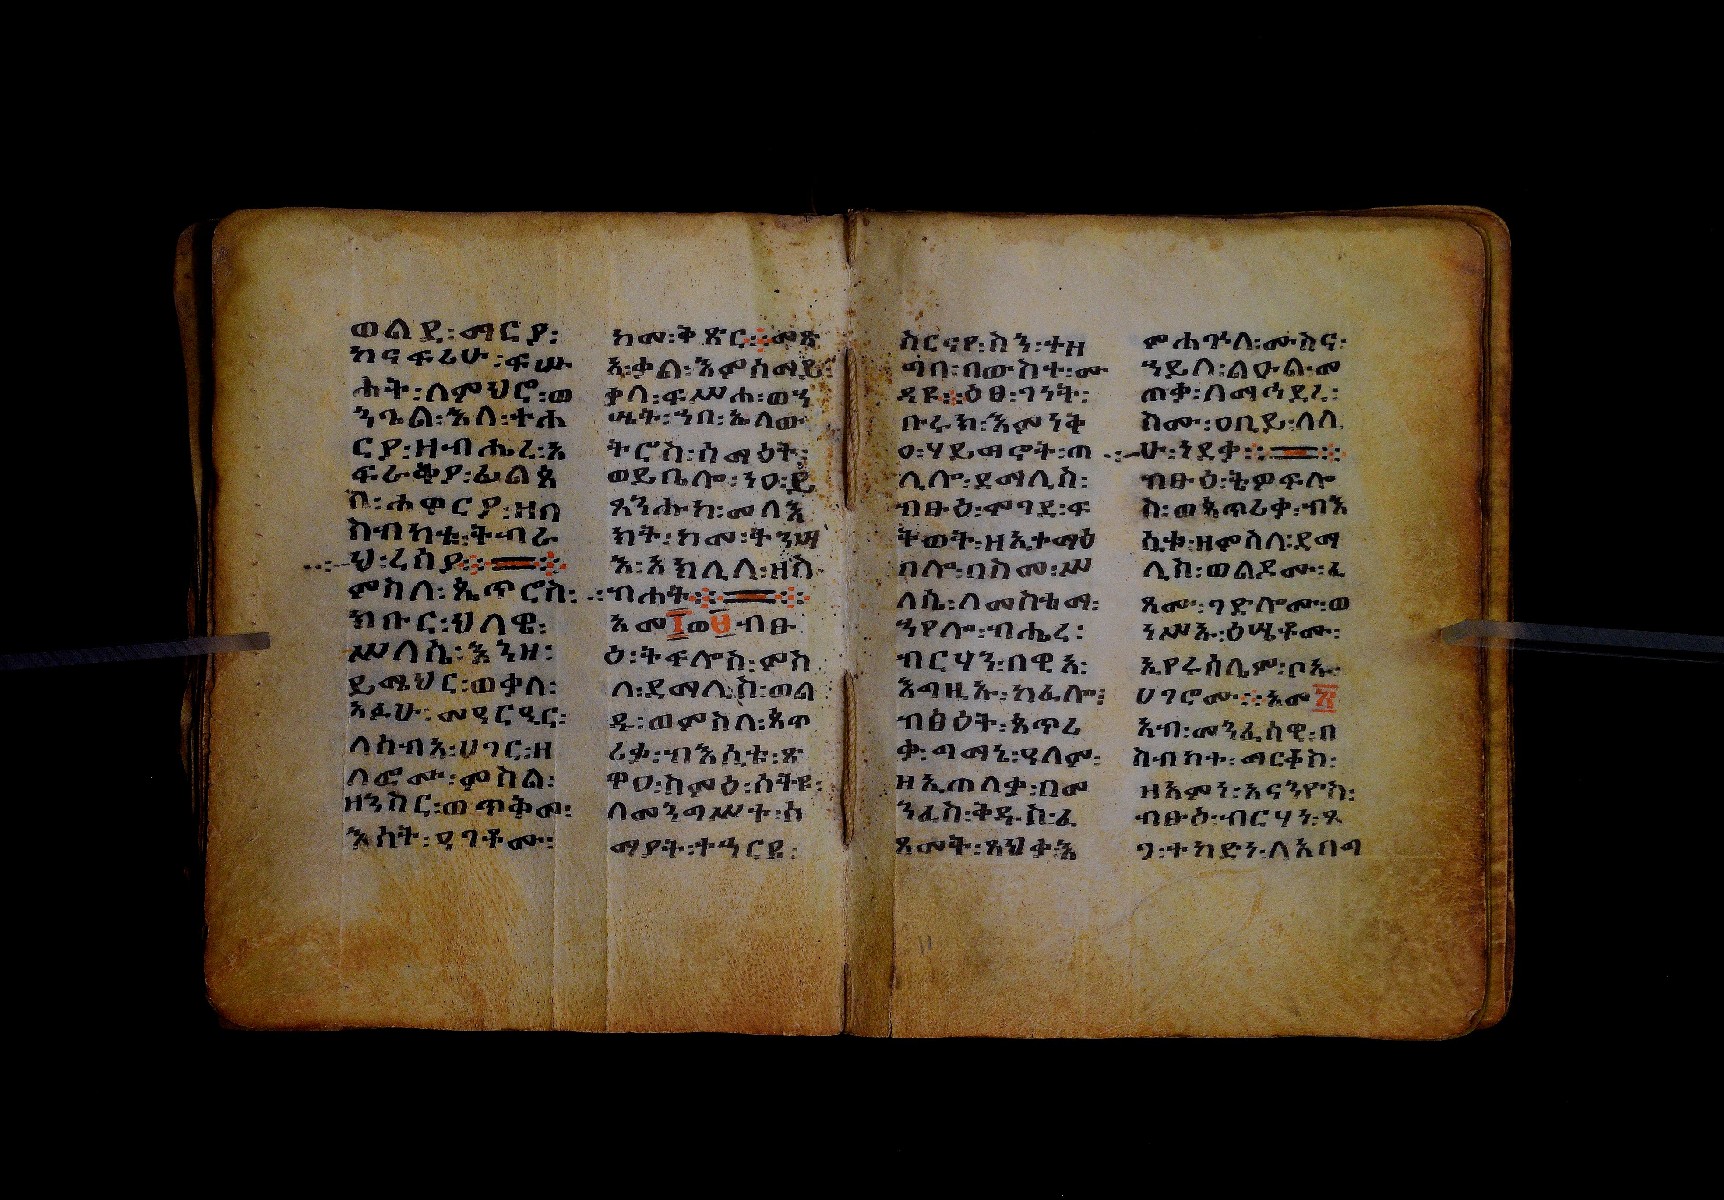 ወልደ፡ማርያ፡
ከናፍሪሁ፡ፍሡ
ሐት፡ለምህሮ፡ወ
ንጌል፡እለ፡ተሐ
ርያ፡ዘብሔረ፡አ
ፍራቅያ፡ፊልጶ
ስ፡ሐዋርያ፡ዘበ
ስብከቱ፡ትብራ
ህ፡ረስያ።
ምስለ፡ጴጥሮስ፡
ክቡር፡ህላዌ፡
ሥላሴ፡እንዘ፡
ይሜህር፡ወቃለ፡
አፉሁ፡መዓርዒር፡
ለሰብአ፡ሀገር፡ዘ
ሎሙ፡ምስል፡
ዘንስር፡ወጥቅመ፡
እስት፡ዓገቶሙ፡
ከመ፡ቅጽር፡መጽ
አ፡ቃል፡እምሰማይ፡
ቃለ፡ፍሥሐ፡ወን
ሤት፡ኀበ፡እለው
ትሮስ፡ሰማዕት፡
ወይቤሎ፡ነዐ፡ይ
ጸንሑከ፡መላእ
ክት፡ከመ፡ትንሣ
እ፡አክሊለ፡ዘስ
ብሐት።
አመ፲ወ፱ብፁ
ዕ፡ትፍሎስ፡ምስ
ለ፡ደማሊስ፡ወል
ዱ፡ወምስለ፡አጥ
ሪቃ፡ብእሲቱ፡ጽ
ዋዐ፡ስምዕ፡ሰትዩ፡
ለመንግሥተ፡ሰ
ማያት፡ተዓርዩ፡
ስርናየ፡ስን፡ተዘ
ግበ፡በውስተ፡ሙ
ዳዩ፡ዕፀ፡ገነት፡
ቡሩክ፡እምነቅ
ዐ፡ሃይማኖት፡ጠ
ሊሎ፡ደማሊስ፡
ብፁዕ፡ሞገደ፡ፍ
ትወት፡ዘኢተማዕ
በሎ፡በስመ፡ሥ
ላሴ፡ለመስቴማ፡
ኀየሎ፡ብሔረ፡
ብርሃን፡በዊአ፡
እግዚኡ፡ከፈሎ፡
ብፅዕት፡አጥሪ
ቃ፡ግማኔ፡ዓለም፡
ዘኢጠለቃ፡በመ
ንፈስ፡ቅዱስ፡ፈ
ጸመት፡ጸህቃ፡እ
ምሐጕለ፡ሙስና፡
ኀይለ፡ልዑል፡መ
ጠቃ፡ለማኅደረ፡
ስሙ፡ዐቢይ፡ለለ
ሁ፡ነደቃ።
ብፁዕ፡ቴዎፍሎ
ስ፡ወጳጥሪቃ፡ብእ
ሲቱ፡ዘምስለ፡ደማ
ሊስ፡ወልዶሙ፡ፈ
ጸሙ፡ገድሎሙ፡ወ
ነሥኡ፡ዕሤቶሙ፡
ኢየሩሳሌም፡ቦኡ፡
ሀገሮሙ።አመ፳
አብ፡መንፈሳዊ፡በ
ስብከተ፡ማርቆስ፡
ዘአምነ፡አናንዮስ፡
ብፁዕ፡ብርሃነ፡ጸ
ጋ፡ተከድነ፡ለአበግ